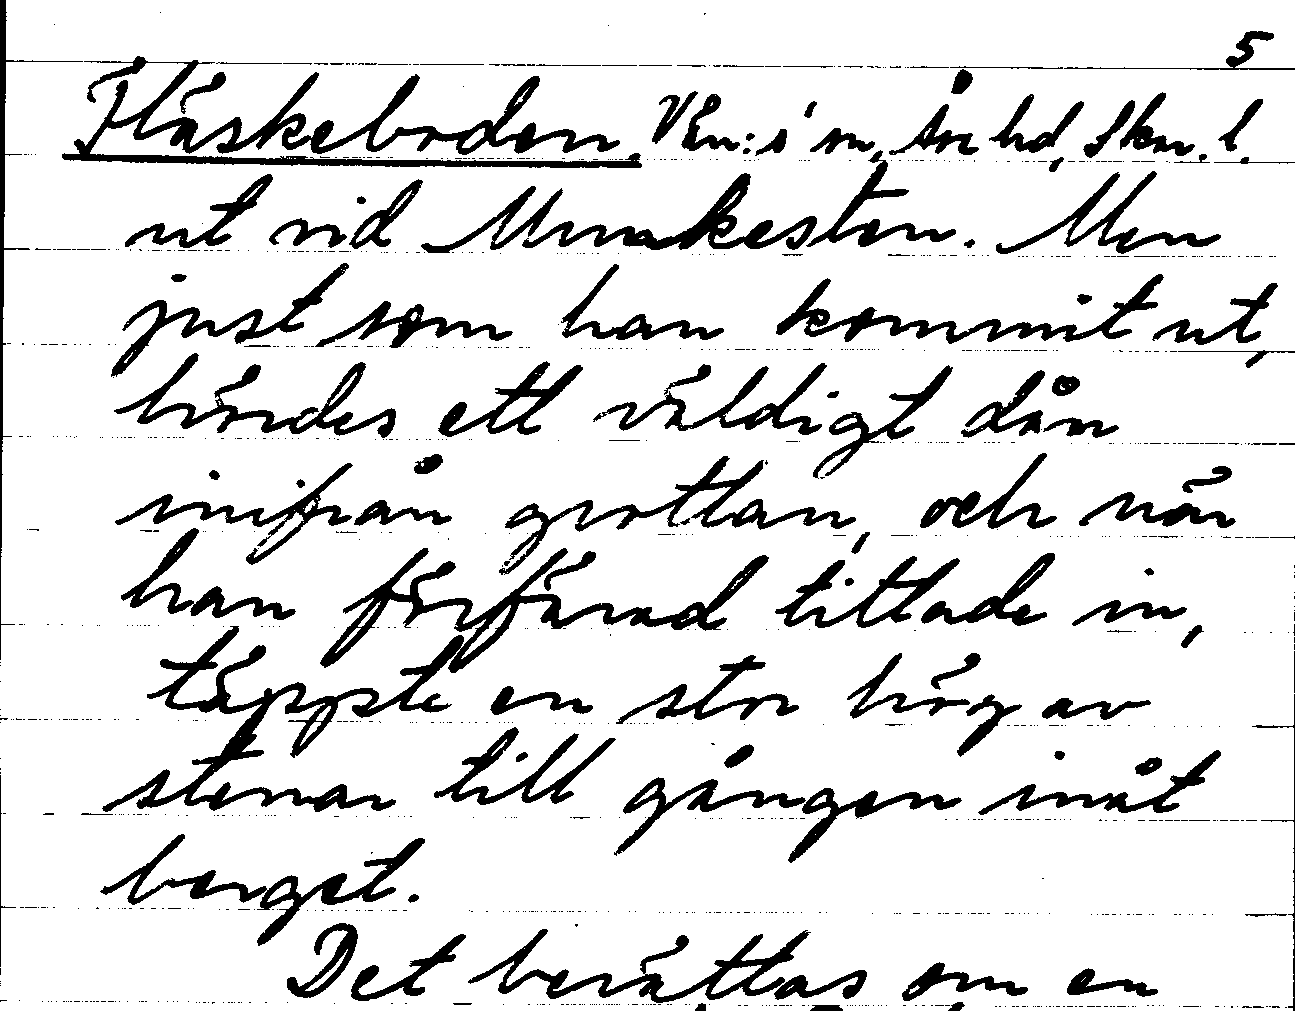 5
Fläskeboden. Vån:s sn, Åse hd, Skar. l.
ut vid Munkesten. Men
just som han kommit ut,
hördes ett väldigt dån
inifrån grottan, och när
han förfärad tittade in,
täppte en stor hög av
stenar till gången inåt
berget.
Det berättas om en